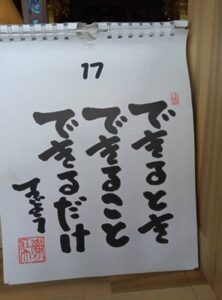 17
できるとき
できること
できるだけ